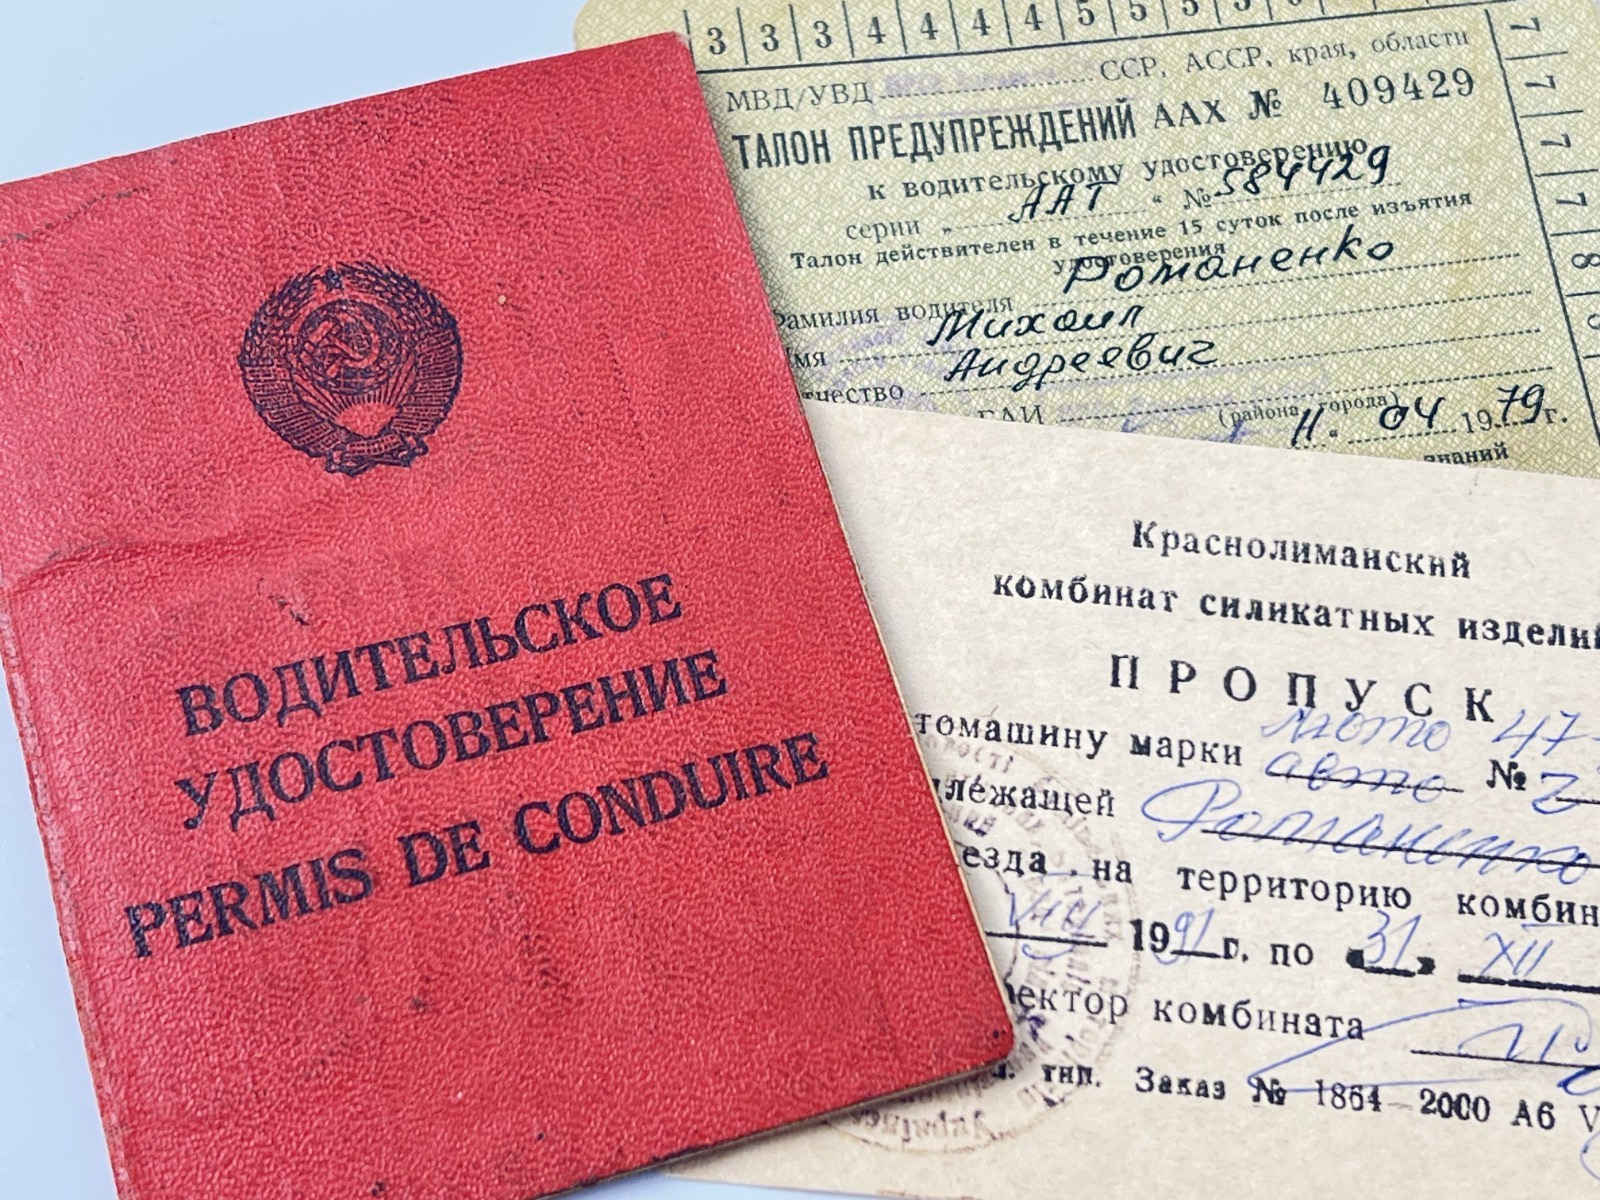 ВОДИТЕЛЬСКОЕ
УДОСТОВЕРЕНИЕ
PERMIS DE CONDUIRE
3 3 3 4 4 4 4 5 5 5 5
7
7
7
7
8
МВД/УВД ССР, АССР, края, области
ТАЛОН ПРЕДУПРЕЖДЕНИЙ ААХ № 409429
к водительскому удостоверению
серии „ ААТ “ № 584429
Талон действителен в течение 15 суток после изъятия
удостоверения
Романенко
фамилия водителя
Михаил
мя
Андреевич
тчество
ГАИ (района, города)
11 “ 04 1979г.
знаний
Краснолиманский
комбинат силикатных изделий
ПРОПУСК
томашину марки мото авто № 47-
длежащей Романенко
езда на территорию комбин
VIII 1991 г. по «31» XII
ректор комбината
тип. Заказ № 1864—2000 А6 V